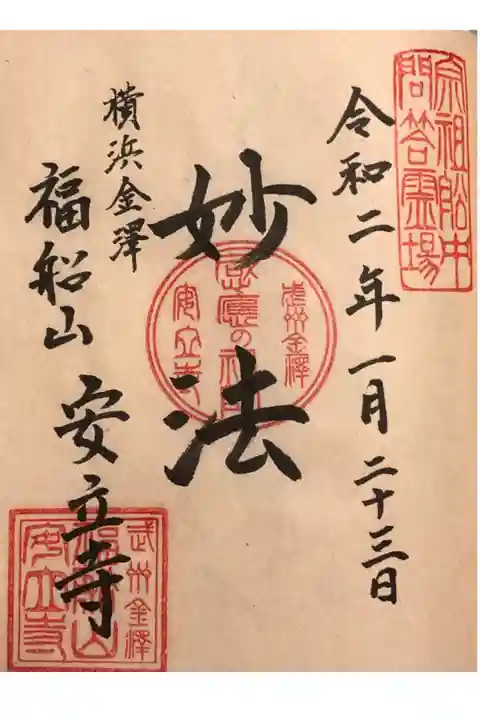 宗祖船中
問答霊場
令和二年一月二十三日
妙法
武州金澤
感應の祖師
安立寺
横浜金澤
福船山 安立寺
武州金澤
福船山
安立寺